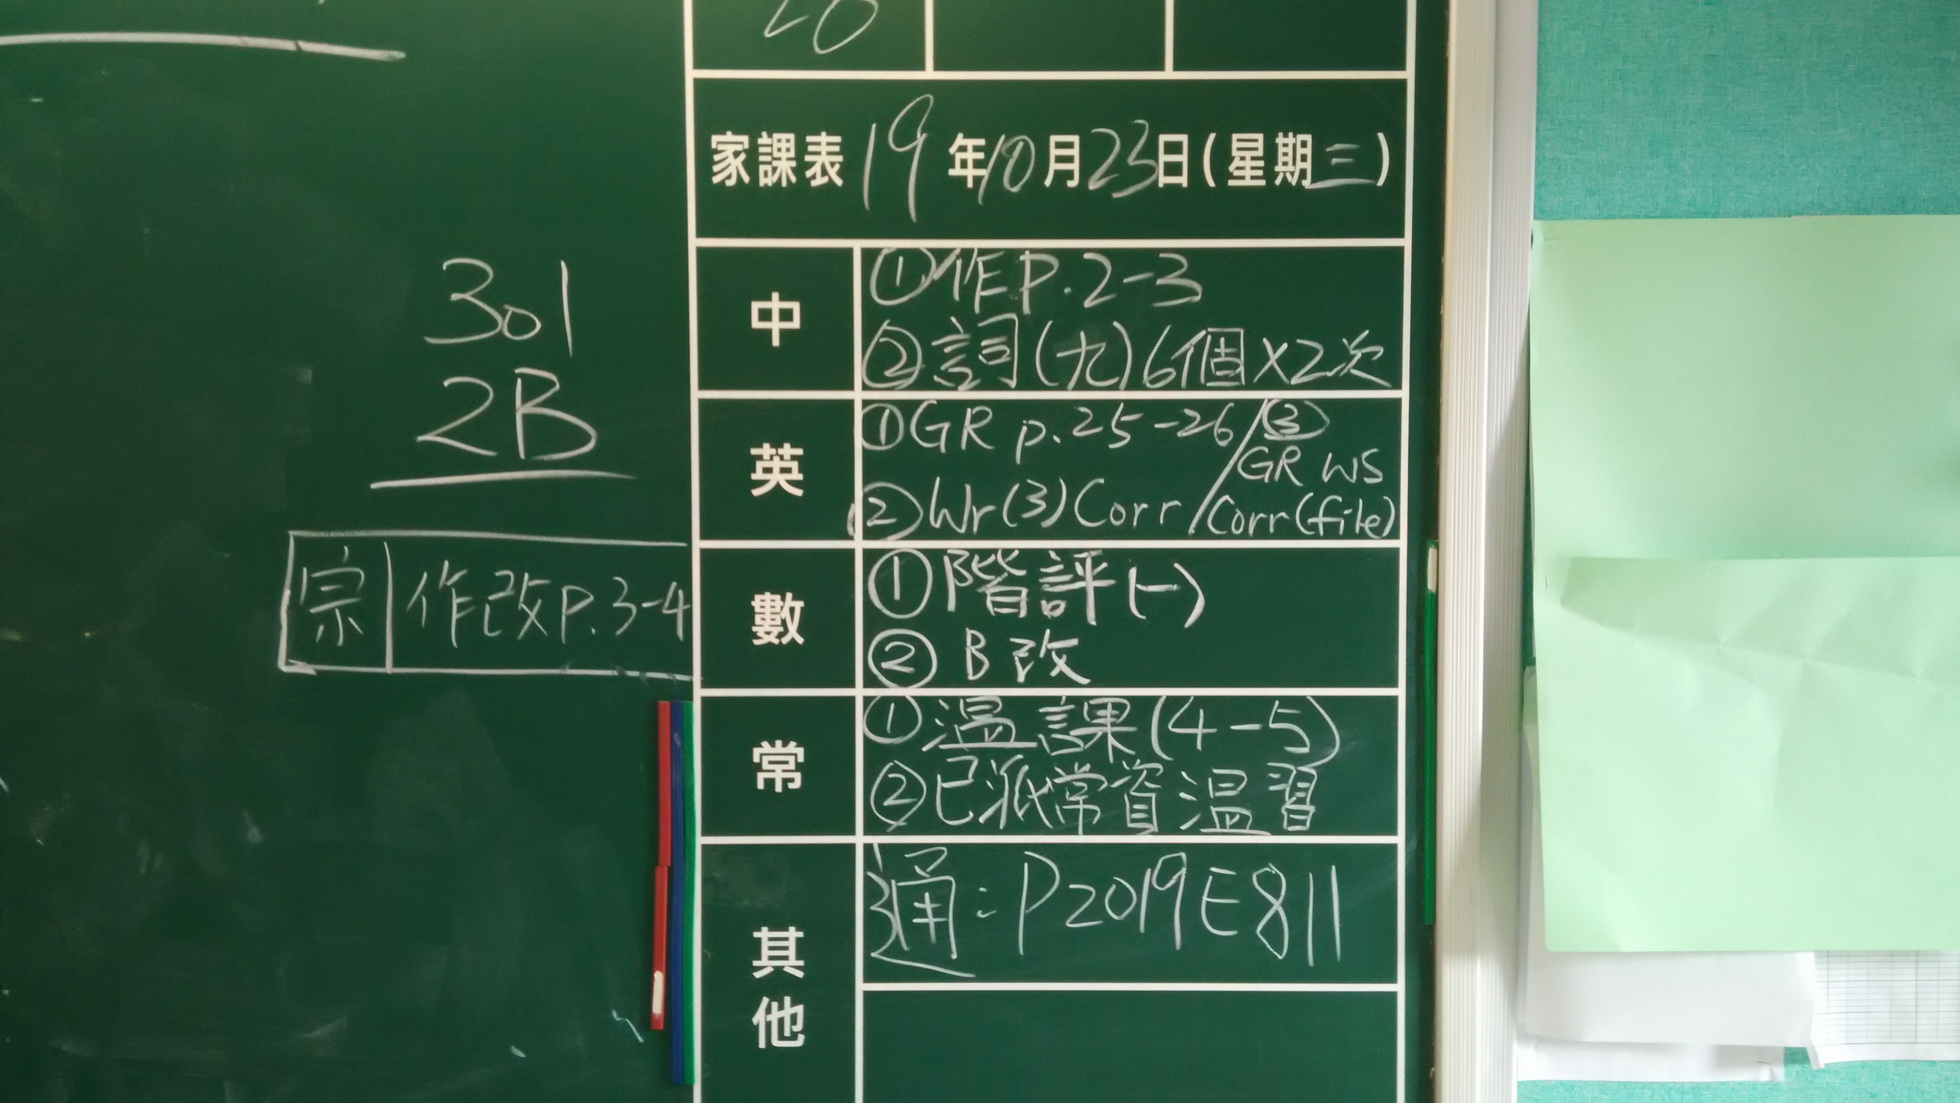 20
家課表 19年10月23日(星期三)
301
2B
宗 作改P.3-4
中
①作P.2-3
②詞(九)6個X2次
英
①GR p.25-26/③
GR WS
②Wr(3)Corr/Corr(file)
數
①階評(一)
②B改
常
①溫課(4-5)
②已派常資溫習
其他
通:P2019E811